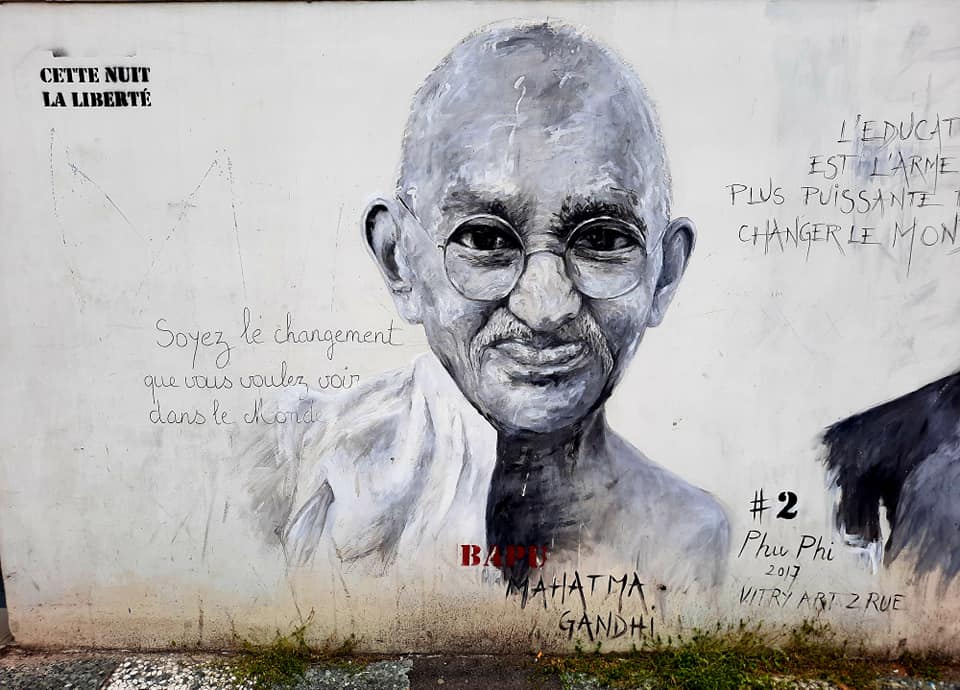 CETTE NUIT
LA LIBERTÉ
L'EDUCAT
EST L'ARME
PLUS PUISSANTE
CHANGER LE MON
Soyez le changement
que vous voulez voir
dans le Monde
# 2
Phu Phi
2017
VITRY ART 2 RUE
BAPU
MAHATMA
GANDHi